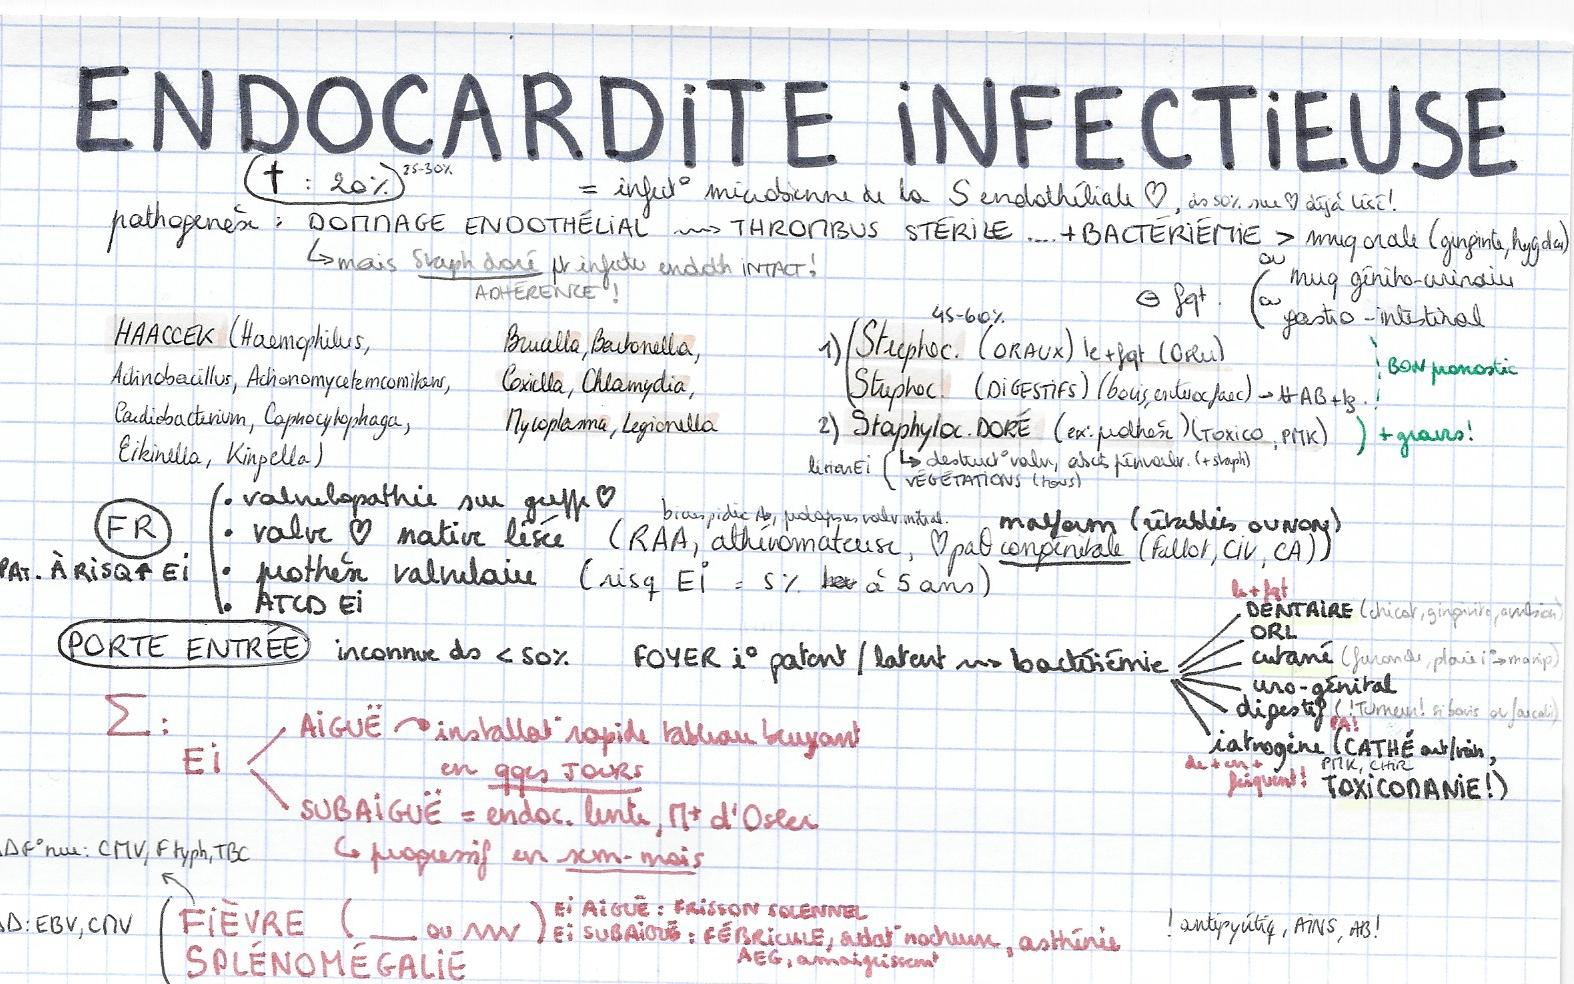 ENDOCARDiTE iNFECTiEUSE
(† : 20%) 25-30%
= infect° microbienne de la S endothéliale ♡, ds 50% sur ♡ déjà lésé!
pathogenèse : DOMMAGE ENDOTHÉLIAL ⇝ THROMBUS STÉRILE .... + BACTÉRIÉMIE > muq orale (gingivite, hyg
↳ mais Staph doré pt infecter endoth INTACT!
ADHÉRENCE !
ou muq génito-urinaire
⊖ fqt. ou gastro-intestinal
HAACCEK (Haemophilus,
Actinobacillus, Actinomycetemcomitans,
Cardiobacterium, Capnocytophaga,
Eikinella, Kingella)
Brucella, Bartonella,
Coxiella, Chlamydia,
Mycoplasma, Legionella
45-60%
1) Streptoc. (ORAUX) le + fqt (ORL)
Streptoc. (DiGESTiFS) (bovis, enteroc faec) →
! BON pronostic
2) Staphyloc. DORÉ (ex: prothèse) (TOXICO, PMK) ) + graves!
lésion Ei ↳ destruct° valv, abcès périvalv. (+ staph)
VÉGÉTATIONS (tous)
FR
PAT. À RISQ↑ Ei
• valvulopathie sur greffe ♡
bicuspidie Ao, prolapsus valv. mitral.
• valve ♡ native lésée (RAA, athéromateuse, ♡path congénitale (Fallot, CiV, CA))
malform (rétablies OU NON)
• prothèse valvulaire (risq Ei = 5% à 5 ans)
• ATCD Ei
PORTE ENTRÉE inconnue ds < 50% FOYER i° patent / latent ⇝ bactériémie
le + fqt
DENTAIRE (chicot, gingivite, avulsion)
ORL
cutané (furoncle, plaie i° → manip)
uro-génital
digestif (! Tumeur! si bovis ou faecali)
iatrogène (CATHÉ
PMK, CHIR
TOXICOMANIE!)
de + en +
fréquent!
Σ :
Ei
AiGUË ↝ installat° rapide tableau bruyant
en qqes JOURS
SUBAiGUË = endoc. lente, M† d'Osler
↳ progressif en sem-mois
ΔΔ F° nue: CMV, F typh, TBC
ΔΔ: EBV, CMV
FiÈVRE ( ___ ou )
Ei AiGUË : FRiSSON SOLENNEL
Ei SUBAiGUË : FÉBRICULE, sudat° nocturne, asthénie
AEG, amaigrissent
! antipyrétiq, AiNS, AB!
SPLÉNOMÉGALiE